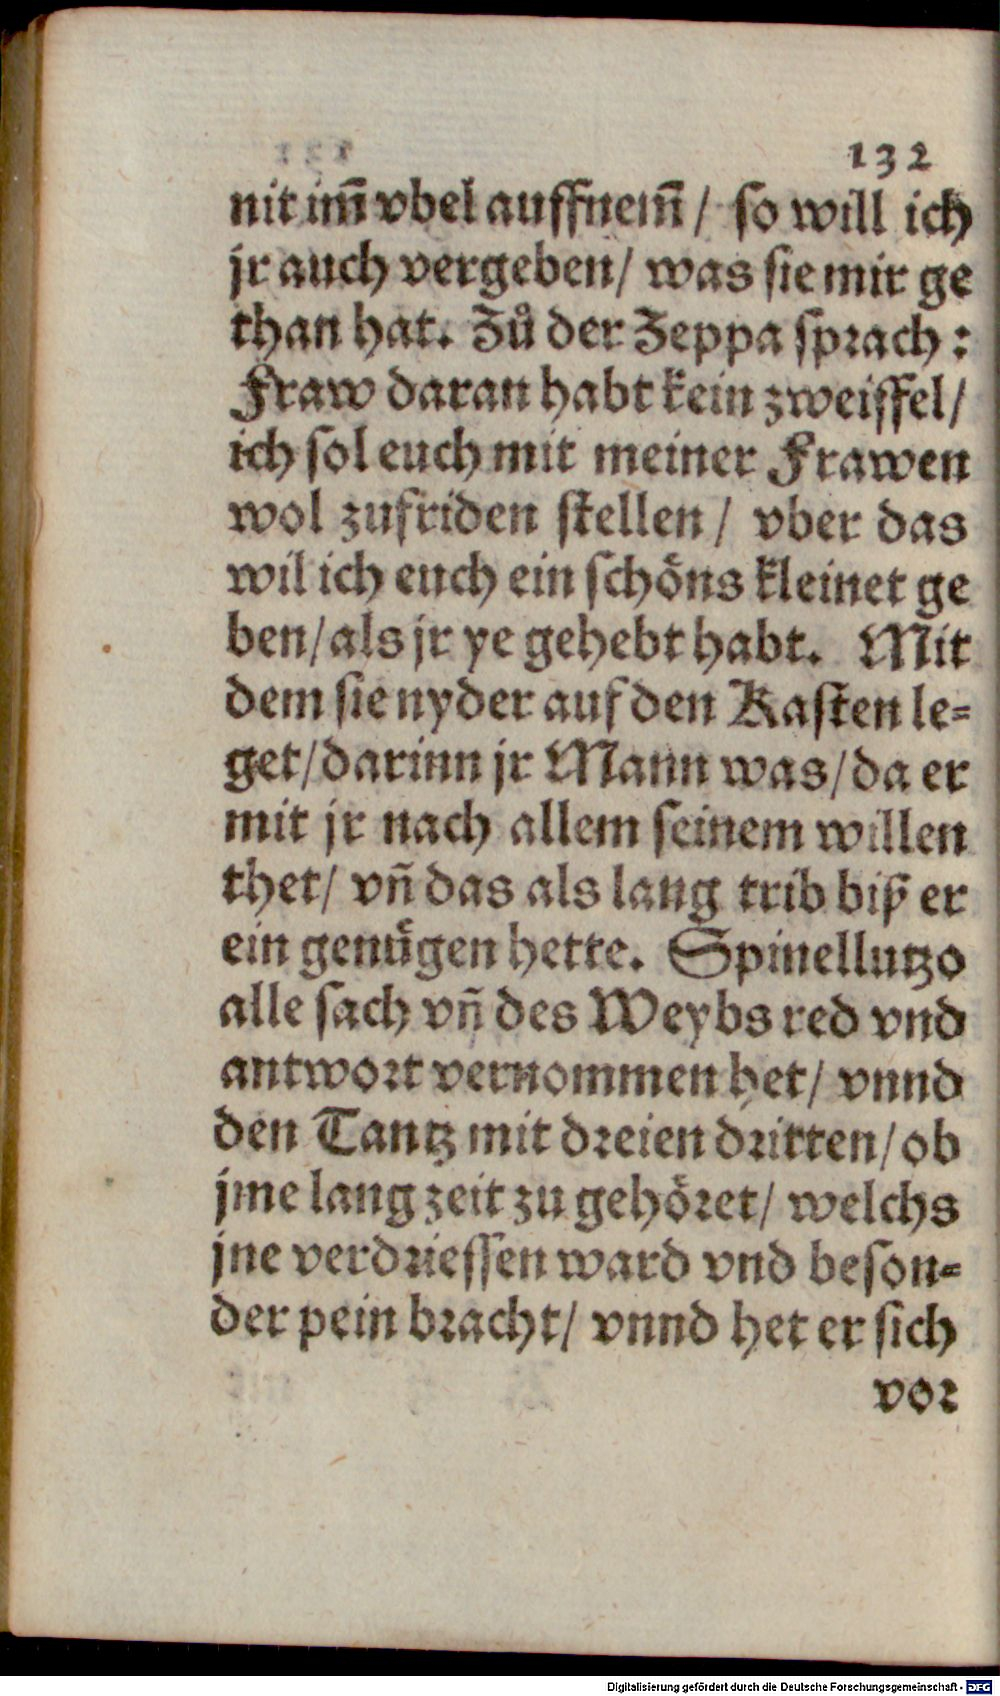 132
nit im̃ vbel auffnem̃ / so will ich
jr auch vergeben / was sie mir ge
than hat. Zů der Zeppa sprach :
Fraw daran habt kein zweiffel /
ich sol euch mit meiner Frawen
wol zufriden stellen / vber das
wil ich euch ein schöns kleinet ge
ben / als jr ye gehebt habt. Mit
dem sie nyder auf den Kasten le=
get / darinn jr Mann was / da er
mit jr nach allem seinem willen
thet / vñ das als lang trib biß er
ein genůgen hette. Spinellutzo
alle sach vñ des Weybs red vnd
antwort vernommen het / vnnd
den Tantz mit dreien dritten / ob
jme lang zeit zu gehöret / welchs
jne verdriessen ward vnd beson=
der pein bracht / vnnd het er sich
vor
Digitalisierung gefördert durch die Deutsche Forschungsgemeinschaft - DFG